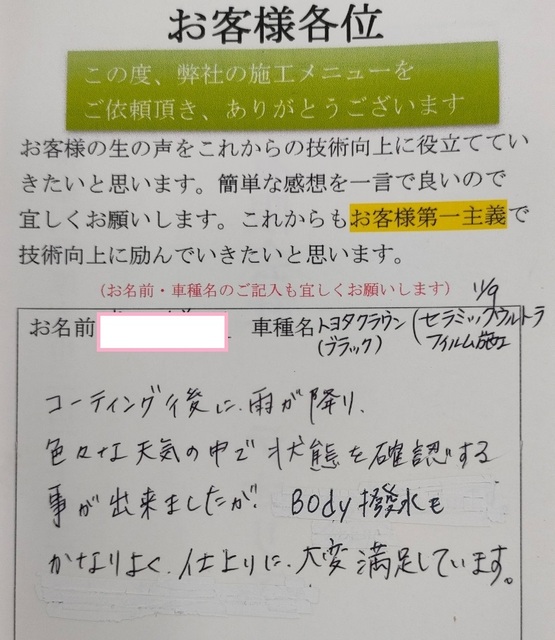 お客様各位
この度、弊社の施工メニューを
ご依頼頂き、ありがとうございます
お客様の生の声をこれからの技術向上に役立ててい
きたいと思います。簡単な感想を一言で良いので
宜しくお願いします。これからもお客様第一主義で
技術向上に励んでいきたいと思います。
(お名前・車種名のご記入も宜しくお願いします) 11/9
お名前 車種名トヨタクラウン(セラミックウルトラ
(ブラック) フィルム施工
コーティング後に、雨が降り、
色々な天気の中で状態を確認する
事が出来ましたが、Body撥水も
かなりよく、仕上りに、大変満足しています。